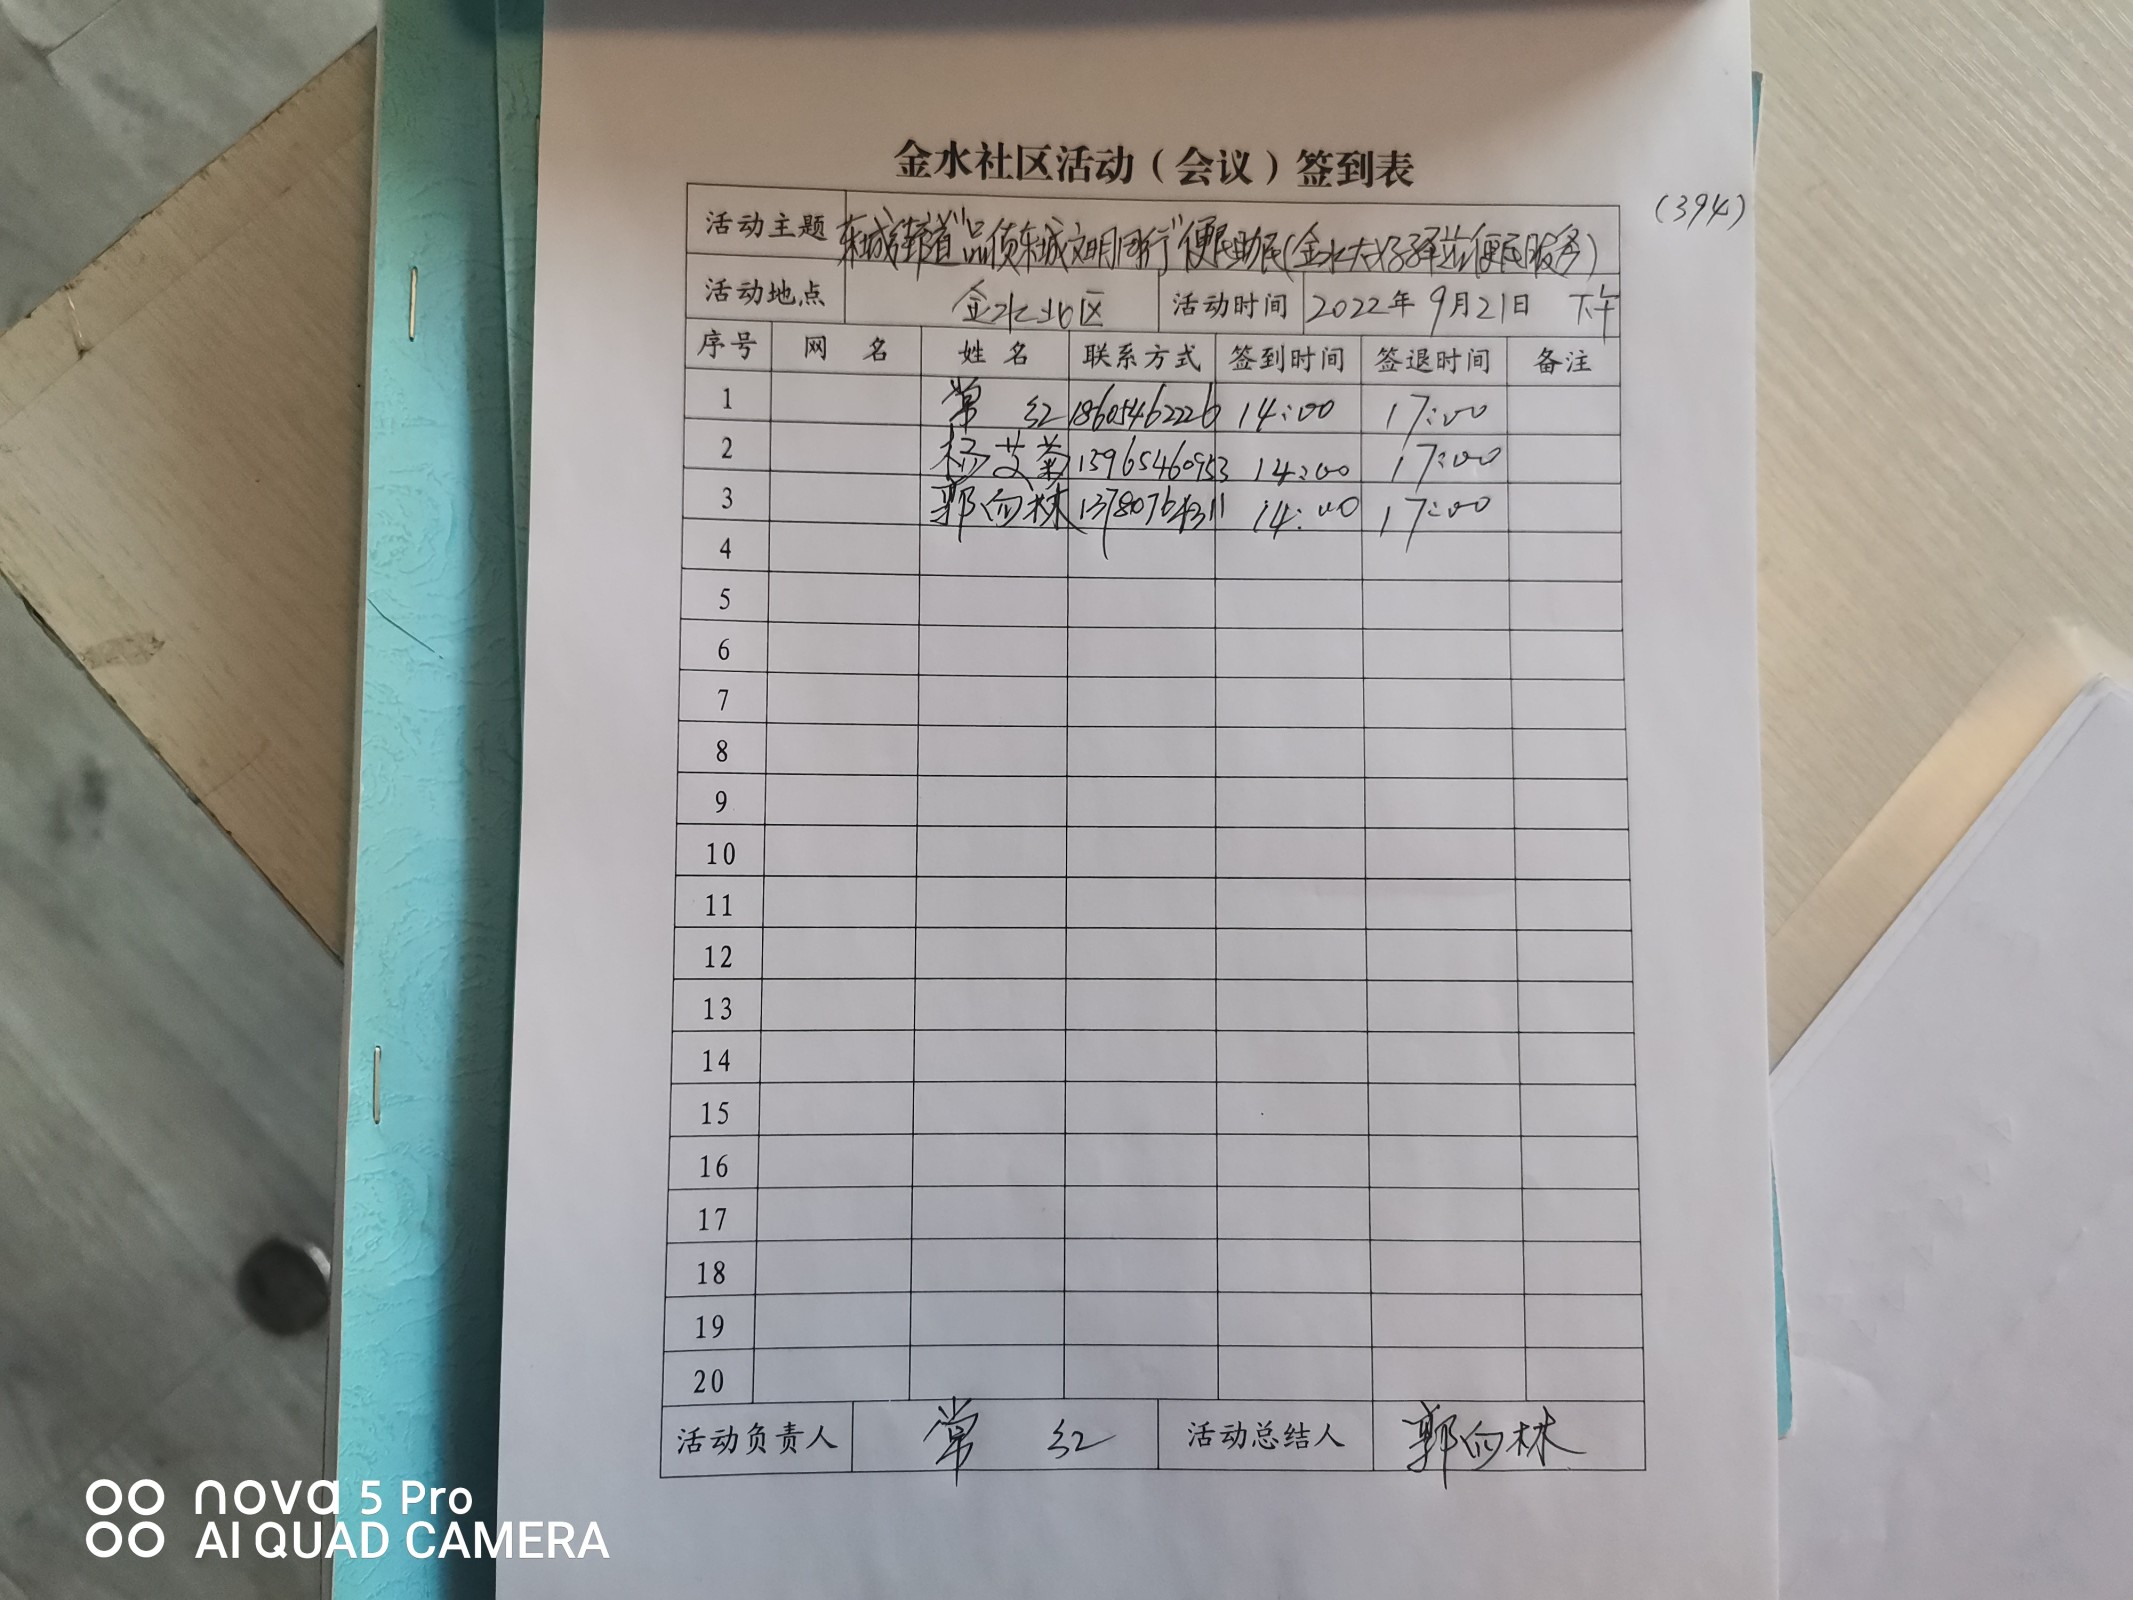 金水社区活动（会议）签到表
(394)
活动主题 东城街道"品质东城文明同行"便民助民(金水大好子驿站便民服务)
活动地点 金水北区 活动时间 2022年9月21日 下午
序号 网 名 姓 名 联系方式 签到时间 签退时间 备注
1 常 红 18605462226 14:00 17:00
2 杨艾菊 15965460953 14:00 17:00
3 郭向林 14:00 17:00
4
5
6
7
8
9
10
11
12
13
14
15
16
17
18
19
20
活动负责人 常 红 活动总结人 郭向林
nova 5 Pro
AI QUAD CAMERA